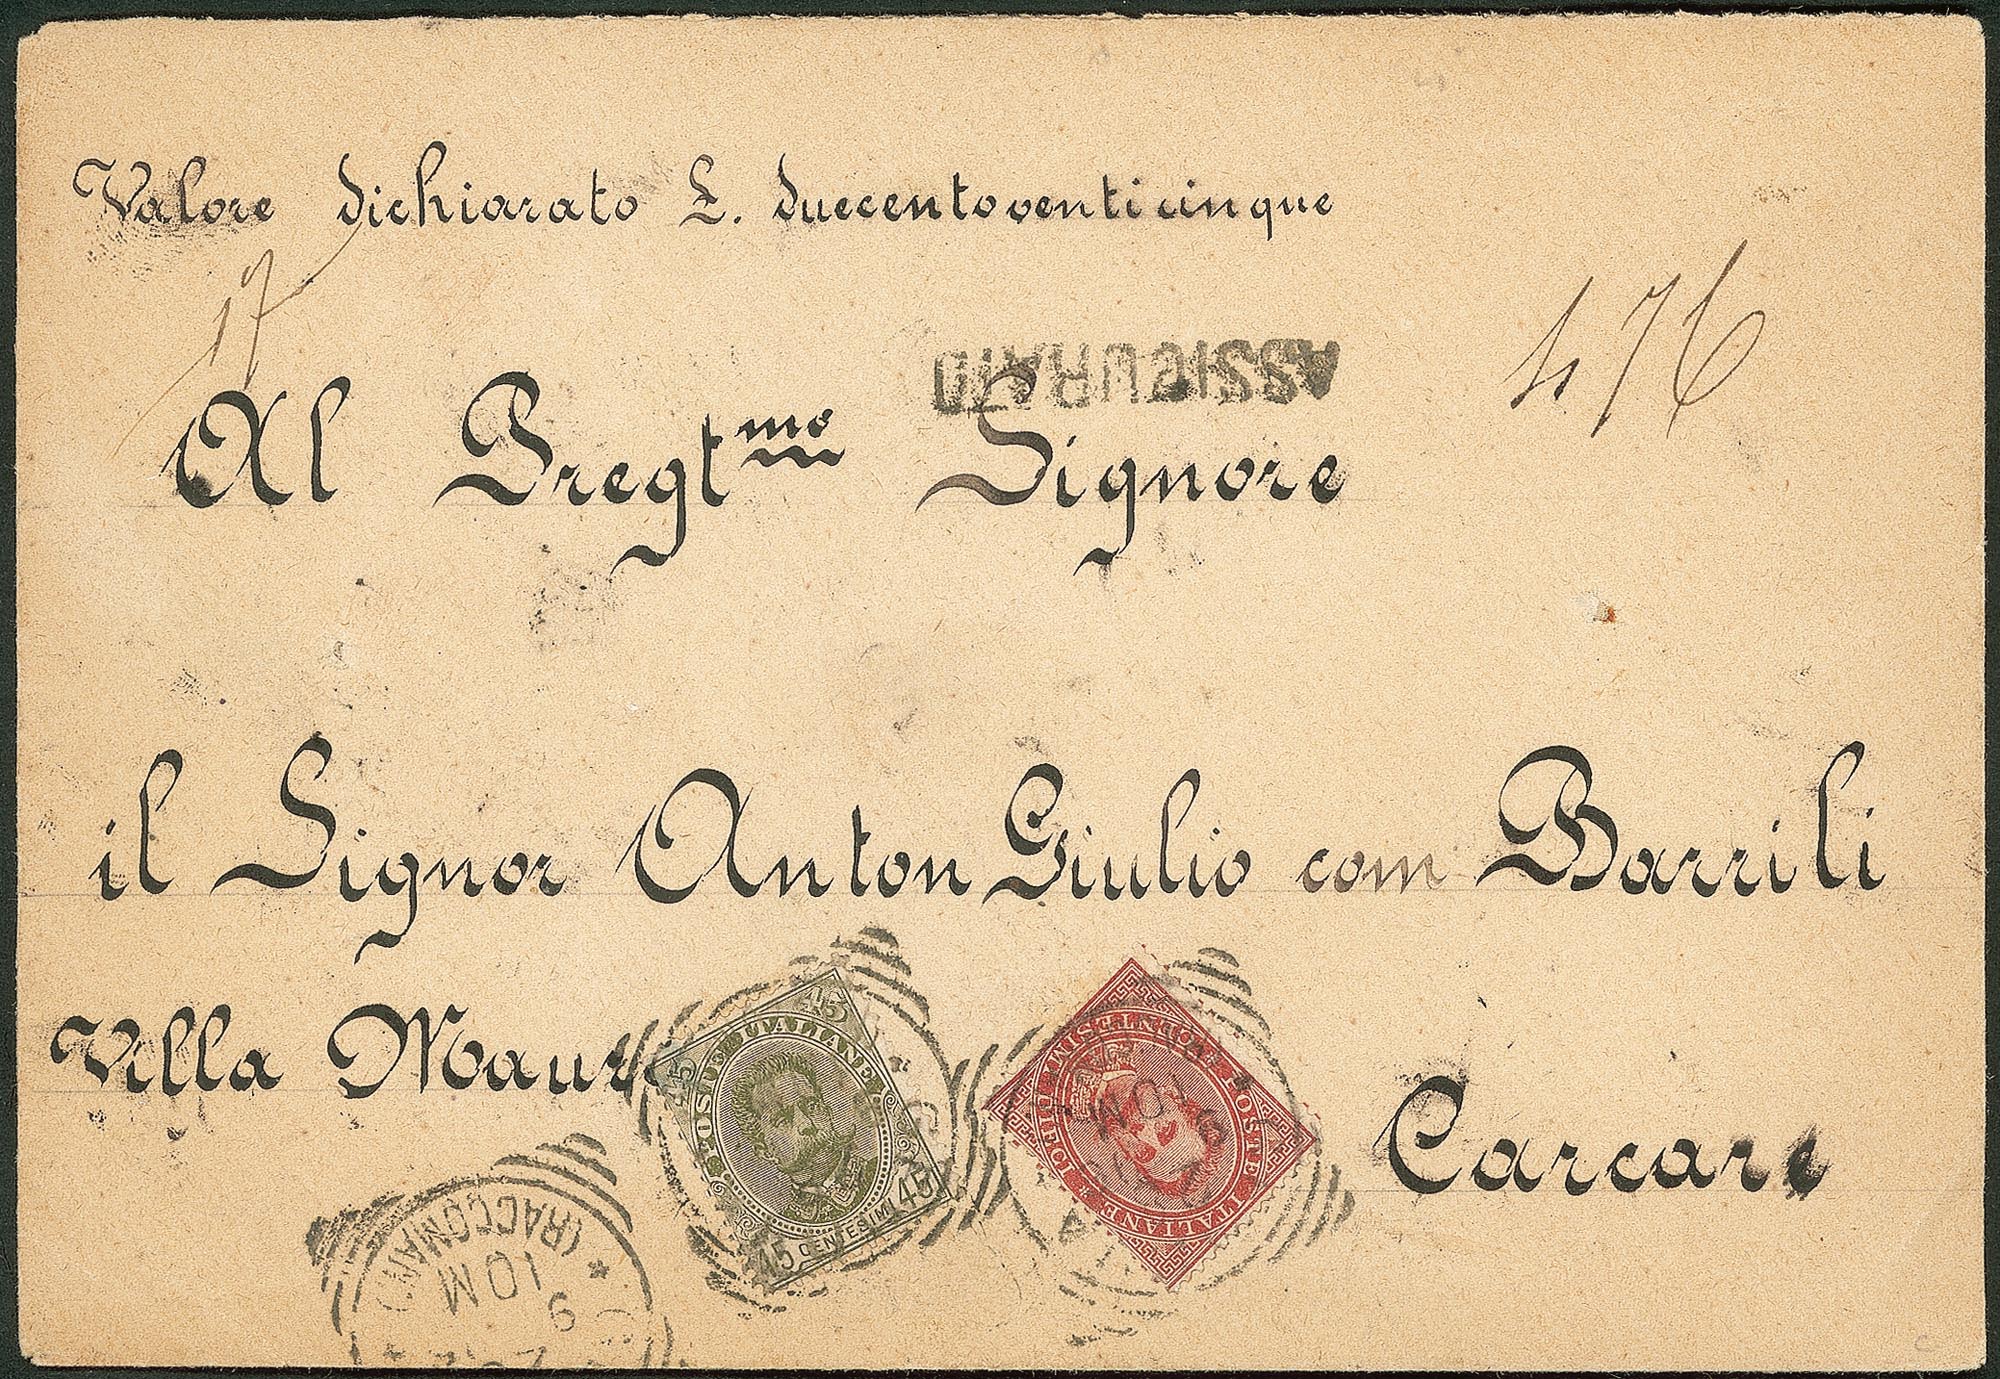 Valore dichiarato £. duecentoventicinque
17
476
ASSICURATO
Al Pregt.mo Signore
il Signor Anton Giulio com Barrili
Villa Maura
Carcare
45
45
POSTE ITALIANE
45
45 CENTESIMI
POSTE ITALIANE
DIECI CENTESIMI
10 M
9
(RACCONIGI)
10 M
9